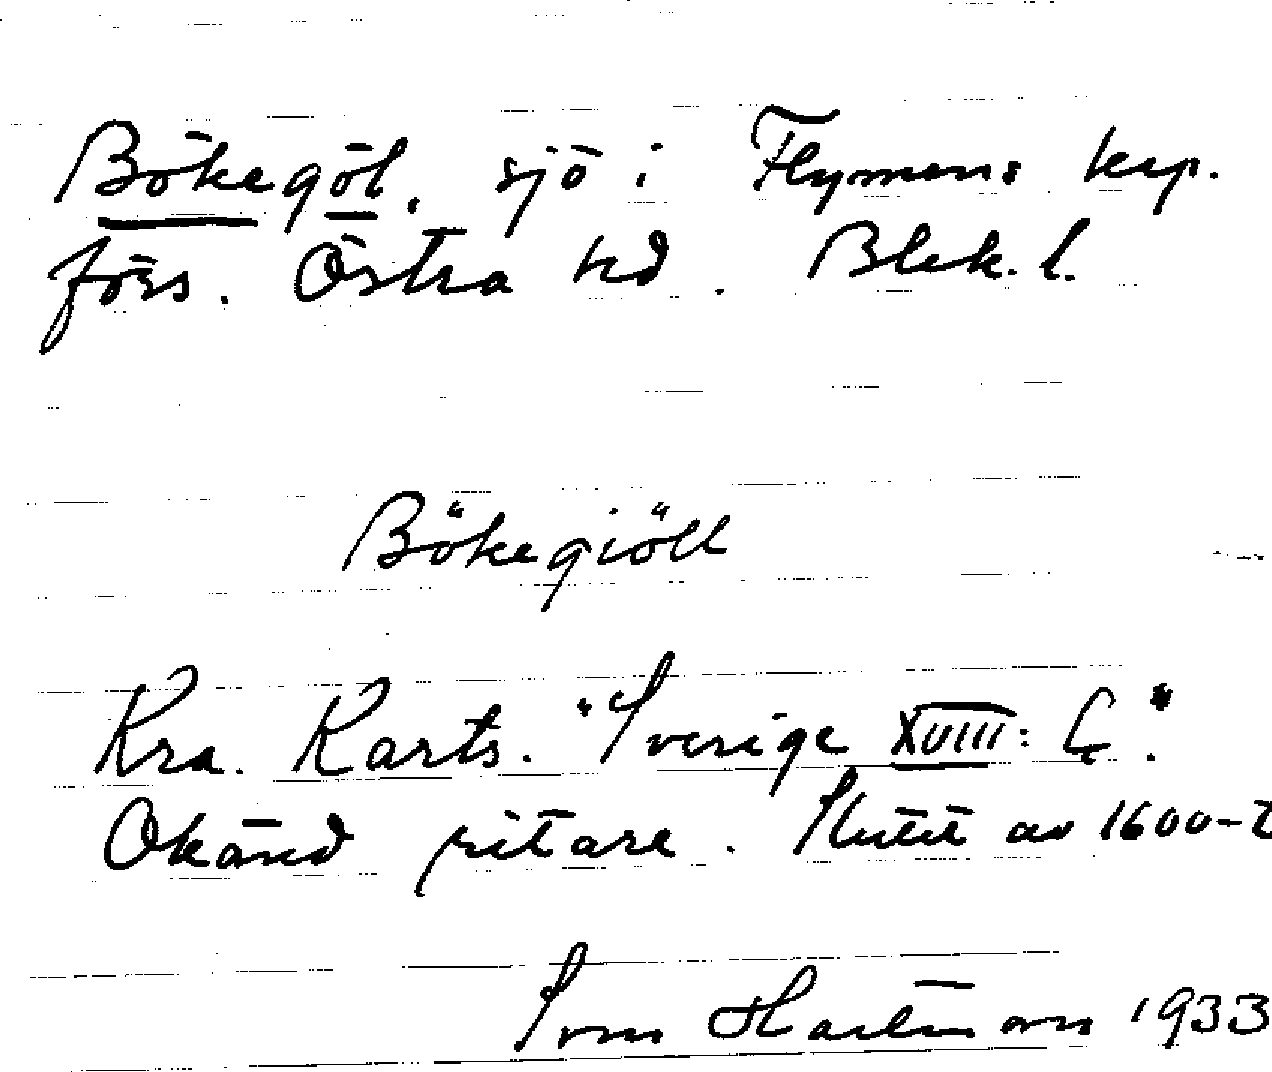 Bökegöl. sjö i Flymens kap.
förs. Östra hd. Blek. l.
Bökegiöll
Kra. Karts. "Sverige XVIII: G."
Okänd ritare. Slutet av 1600-t
Sven Hartman 1933